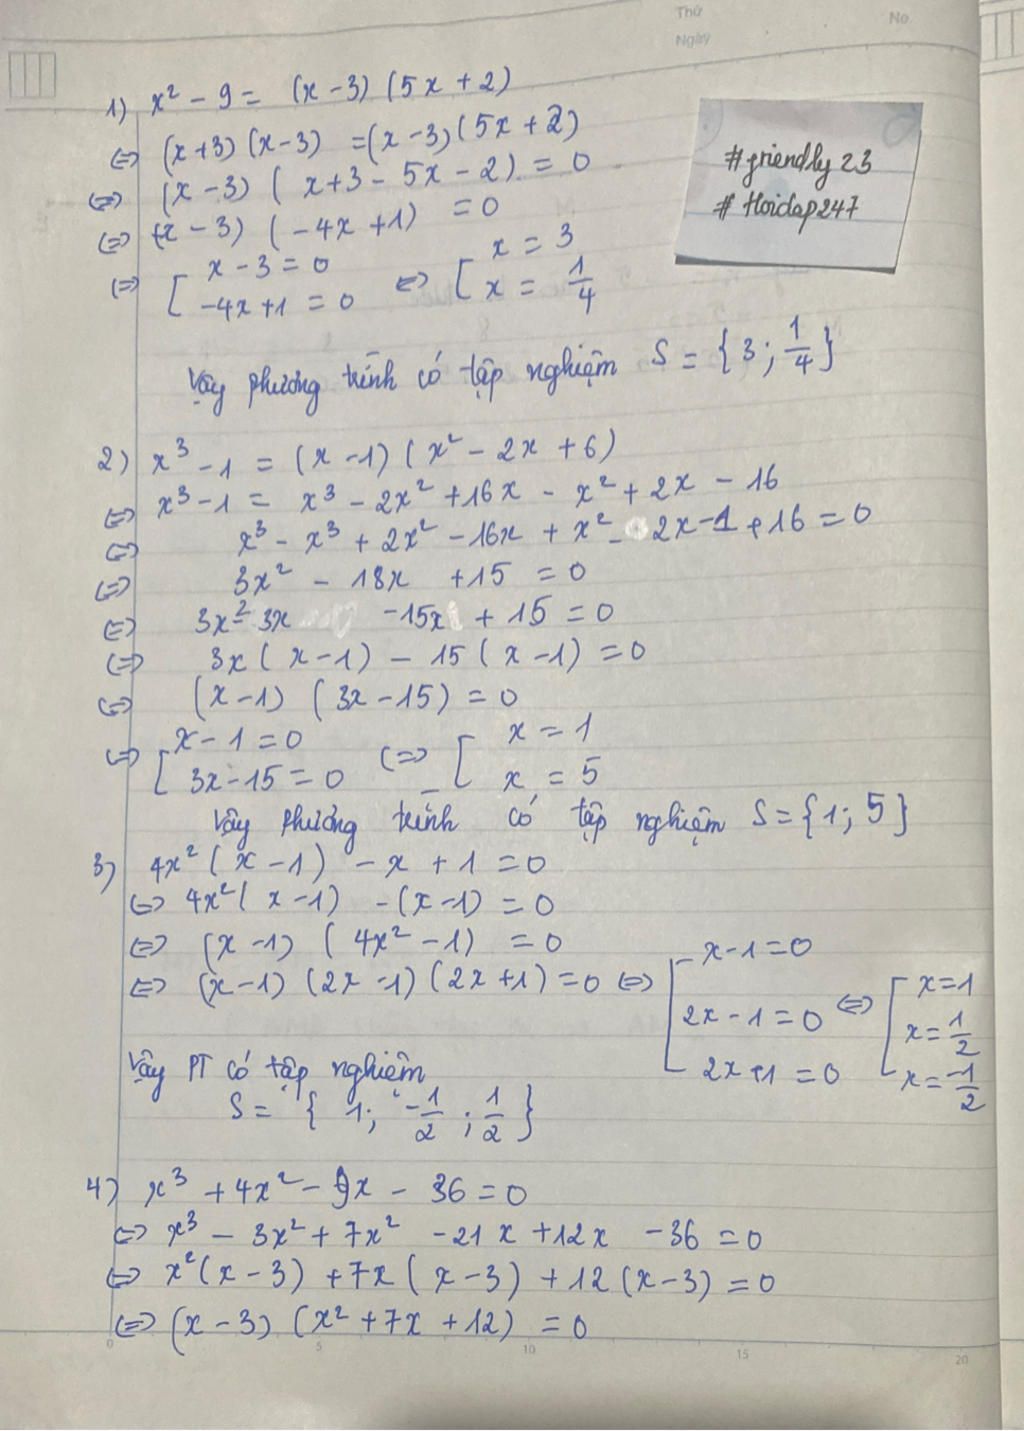 Thứ
Ngày
No.
1) x² - 9 = (x - 3) (5x + 2)
⇔ (x+3) (x-3) = (x-3) (5x + 2)
⇔ (x-3) ( x+3 - 5x - 2) = 0
⇔ (x - 3) ( -4x + 1) = 0
⇔ [ x - 3 = 0 ⇔ [ x = 3
-4x + 1 = 0 x = 1/4
#friendly 23
# Hoidap247
Vậy phương trình có tập nghiệm S = {3; 1/4}
2) x³ - 1 = (x - 1) (x² - 2x + 6)
⇔ x³ - 1 = x³ - 2x² + 16x - x² + 2x - 16
⇔ x³ - x³ + 2x² - 16x + x² - 2x - 1 + 16 = 0
⇔ 3x² - 18x + 15 = 0
⇔ 3x² - 3x - 15x + 15 = 0
⇔ 3x ( x - 1) - 15 ( x - 1) = 0
⇔ (x - 1) (3x - 15) = 0
⇔ [ x - 1 = 0 ⇔ [ x = 1
3x - 15 = 0 x = 5
Vậy phương trình có tập nghiệm S = {1; 5}
3) 4x² ( x - 1) - x + 1 = 0
⇔ 4x² ( x - 1) - (x - 1) = 0
⇔ (x - 1) ( 4x² - 1) = 0
⇔ (x - 1) (2x - 1) (2x + 1) = 0 ⇔ [ x - 1 = 0 ⇔ [ x = 1
2x - 1 = 0 x = 1/2
2x + 1 = 0 x = -1/2
Vậy PT có tập nghiệm
S = { 1; -1/2 ; 1/2 }
4) x³ + 4x² - 9x - 36 = 0
⇔ x³ - 3x² + 7x² - 21x + 12x - 36 = 0
⇔ x² (x - 3) + 7x ( x - 3) + 12 (x - 3) = 0
⇔ (x - 3) (x² + 7x + 12) = 0
0 5 10 15 20